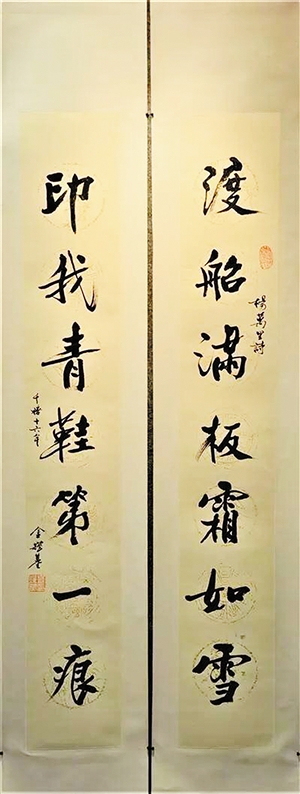 渡船滿板霜如雪
楊萬里詩
印我青鞋第一痕
千禧十六年
金耀基